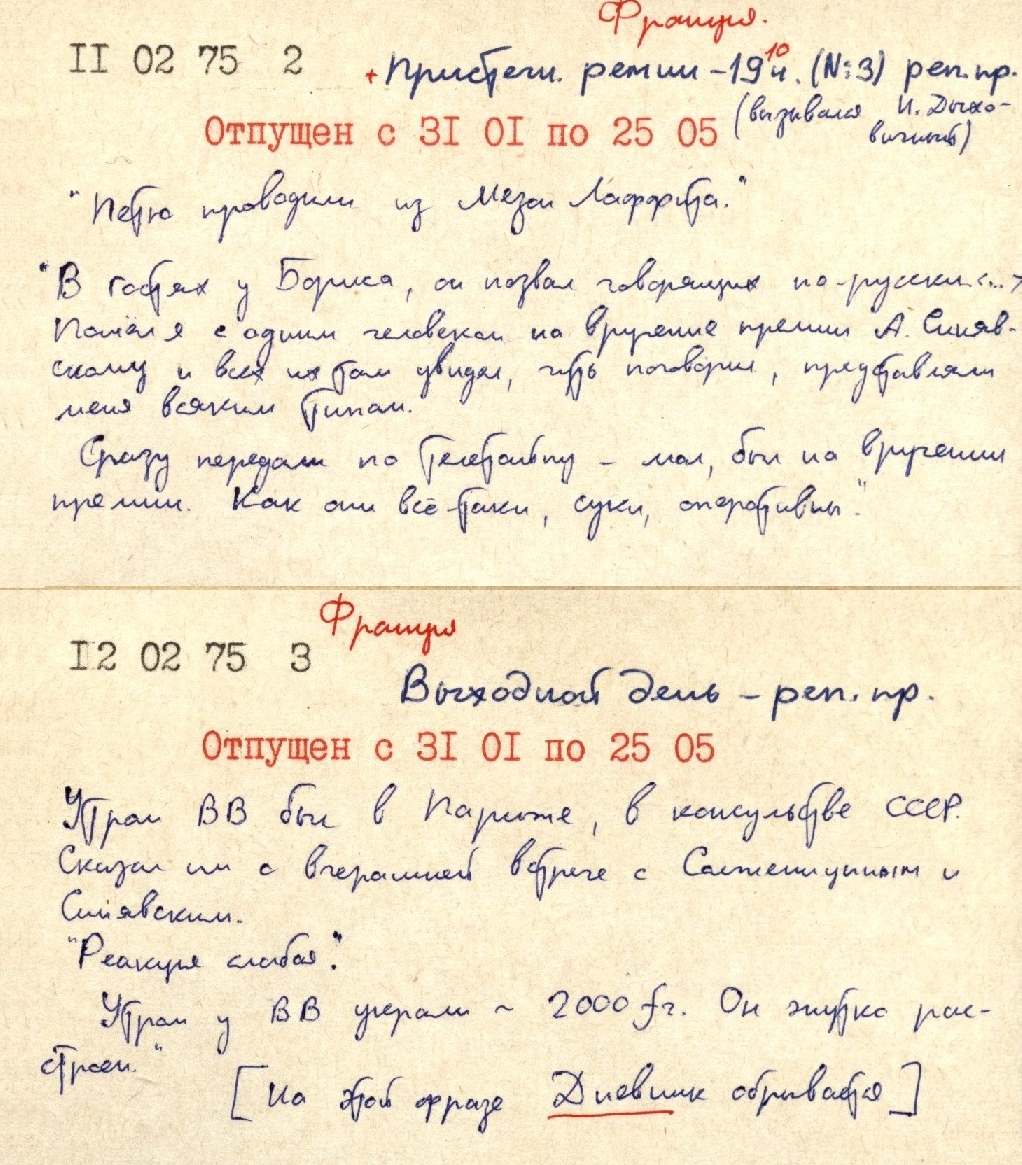 Франция.
II 02 75 2
+ Пристегн. ремни – 19 10 ч. (№3) реп. пр.
(вызывался И. Дыхо-
вичный)
Отпущен с 3I 0I по 25 05
"Петю проводили из Мезон Лаффита."
"В гостях у Бориса, он позвал говорящих по-русски <...>
Пошёл я с одним человеком на вручение премии А. Синяв-
скому и всех их там увидел, чуть поговорил, представляли
меня всяким типам.
Сразу передали по телетайпу – мол, был на вручении
премии. Как они всё-таки, суки, оперативны".
Франция
I2 02 75 3
Выходной день – реп. пр.
Отпущен с 3I 0I по 25 05
Утром ВВ был в Париже, в консульстве СССР.
Сказал им о вчерашней встрече с Солженицыным и
Синявским.
"Реакция слабая".
Утром у ВВ украли ~ 2000 fr. Он жутко рас-
строен."
[На этой фразе Дневник обрывается]